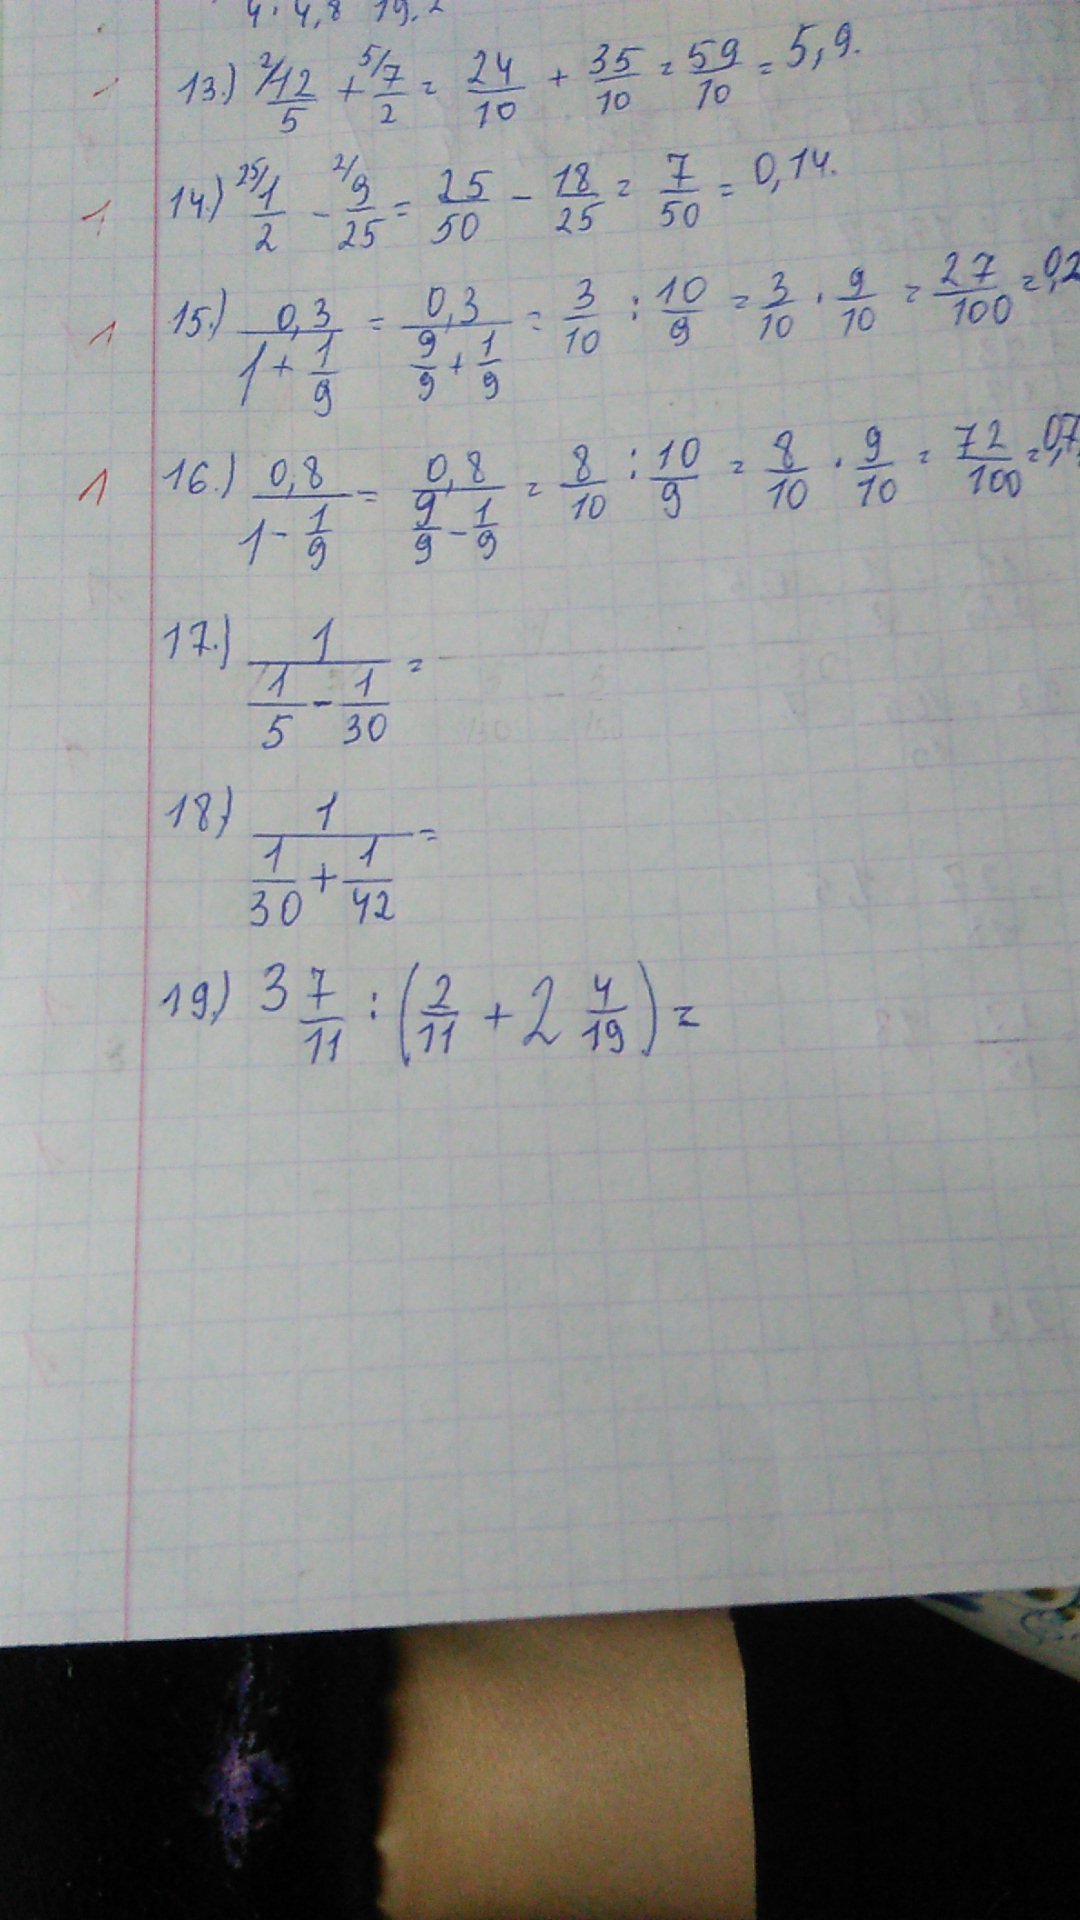 4 · 4,8 19,2
13.) 2/12/5 + 5/7/2 = 24/10 + 35/10 = 59/10 = 5,9.
1 14.) 25/1/2 - 2/9/25 = 25/50 - 18/25 = 7/50 = 0,14.
1 15.) 0,3/(1 + 1/9) = 0,3/(9/9 + 1/9) = 3/10 : 10/9 = 3/10 · 9/10 = 27/100 = 0,2
1 16.) 0,8/(1 - 1/9) = 0,8/(9/9 - 1/9) = 8/10 : 10/9 = 8/10 · 9/10 = 72/100 = 0,7
17.) 1/(1/5 - 1/30) =
18) 1/(1/30 + 1/42) =
19.) 3 7/11 : (2/11 + 2 4/19) =